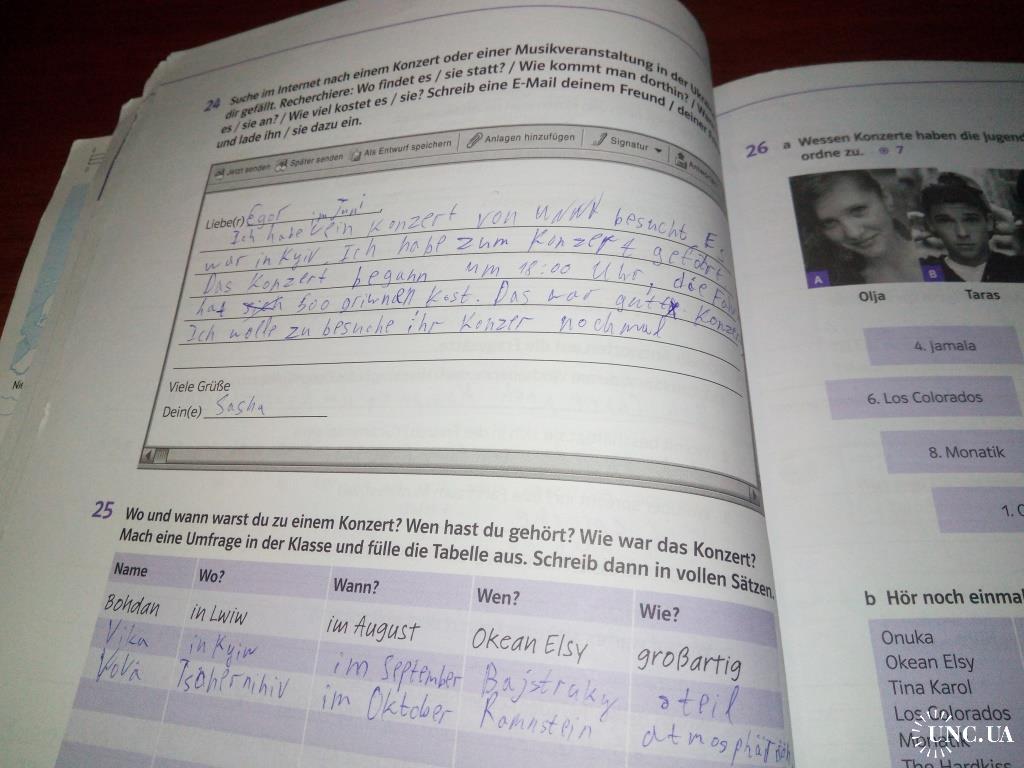 24 Suche im Internet nach einem Konzert oder einer Musikveranstaltung in der
dir gefällt. Recherchiere: Wo findet es / sie statt? / Wie kommt man dorthin? /
es / sie an? / Wie viel kostet es / sie? Schreib eine E-Mail deinem Freund / deiner
und lade ihn / sie dazu ein.
Jetzt senden Später senden Als Entwurf speichern Anlagen hinzufügen Signatur
Liebe(r) Egor
im Juni
Ich habe ein Konzert von besucht E.
war in Kyiv. Ich habe zum Konzert gefährt
Das Konzert begann um 18:00 Uhr, die
hat 300 griwnen kost. Das war gut Konzer
Ich wolle zu besuche ihr Konzer nochmal
Viele Grüße
Dein(e) Sasha
25 Wo und wann warst du zu einem Konzert? Wen hast du gehört? Wie war das Konzert?
Mach eine Umfrage in der Klasse und fülle die Tabelle aus. Schreib dann in vollen Sätzen.
Name Wo? Wann? Wen? Wie?
Bohdan in Lwiw im August Okean Elsy großartig
Vika in Kyiw im September Bajstruky steil
Vova Tschernihiv im Oktober Ramnstein
26 a Wessen Konzerte haben die
ordne zu. 7
A B
Olja Taras
4. Jamala
6. Los Colorados
8. Monatik
1.
b Hör noch einmal
Onuka
Okean Elsy
Tina Karol
Los Colorados
Monatik
The Hardkiss
UNC.UA